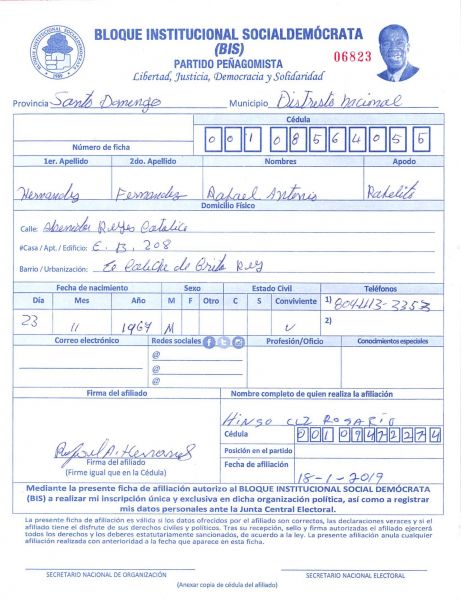 BLOQUE INSTITUCIONAL SOCIALDEMÓCRATA
(BIS)
PARTIDO PEÑAGOMISTA
Libertad, Justicia, Democracia y Solidaridad
06823
Provincia Santo Domingo Municipio Distrito nacional
Cédula
Número de ficha 0 0 1 0 8 5 6 4 0 5 5
1er. Apellido 2do. Apellido Nombres Apodo
Hernandez Fernandez Rafael Antonio Rafelito
Domicilio Físico
Calle: Reyes Catolico
#Casa / Apt. / Edificio: E. B, 208
Barrio / Urbanización: de Cristo Rey
Fecha de nacimiento Sexo Estado Civil Teléfonos
Día Mes Año M F Otro C S Conviviente 1) 809-413-3353
23 11 1967 M 2)
Correo electrónico Redes sociales Profesión/Oficio Conocimientos especiales
@
@
@
Firma del afiliado Nombre completo de quien realiza la afiliación
ROSARIO
Cédula 0 0 1 0 9 4 7 2 2 7 4
Posición en el partido
Firma del afiliado
(Firme igual que en la Cédula)
Fecha de afiliación
18-1-2019
Mediante la presente ficha de afiliación autorizo al BLOQUE INSTITUCIONAL SOCIAL DEMÓCRATA
(BIS) a realizar mi inscripción única y exclusiva en dicha organización política, así como a registrar
mis datos personales ante la Junta Central Electoral.
La presente ficha de afiliación es válida si los datos ofrecidos por el afiliado son correctos, las declaraciones veraces y si el afiliado
tiene el disfrute de sus derechos civiles y políticos. Tras su recepción, sello y firma autorizadas el afiliado ejercerá
todos los derechos y los deberes estatutariamente sancionados, de acuerdo a la ley. La presente afiliación anula cualquier
afiliación realizada con anterioridad a la fecha que aparece en esta ficha.
SECRETARIO NACIONAL DE ORGANIZACIÓN SECRETARIO NACIONAL ELECTORAL
(Anexar copia de cédula del afiliado)